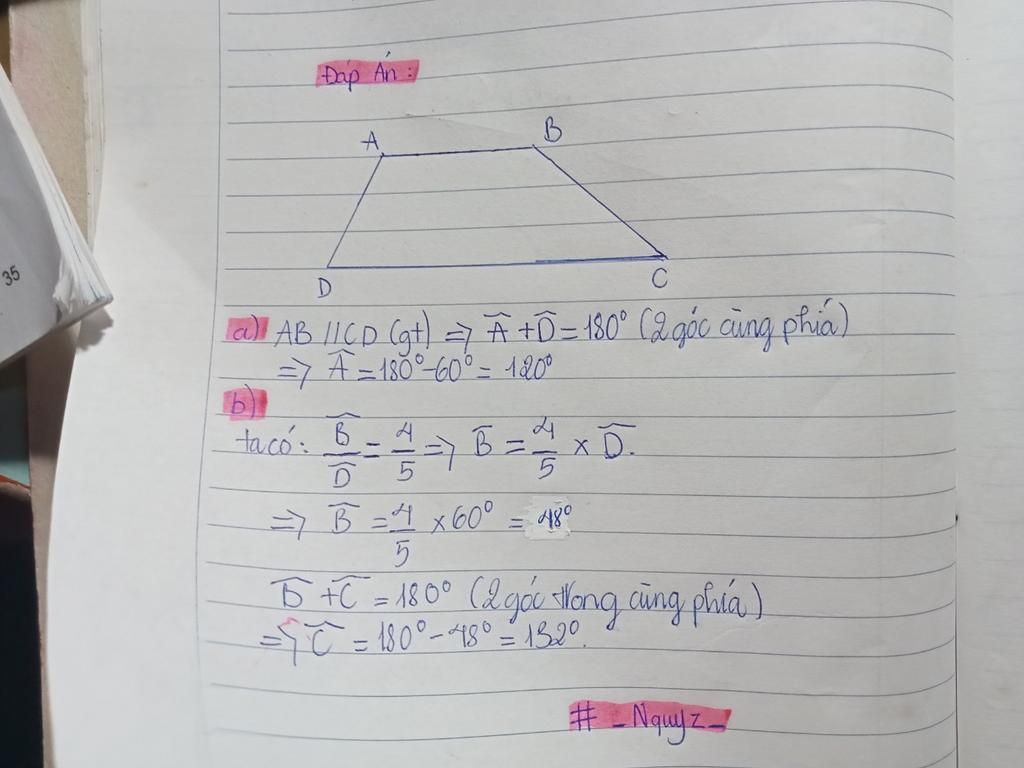 Đáp Án:
A B
D C
35
a) AB // CD (gt) => Â + D̂ = 180° (2 góc cùng phía)
=> Â = 180° - 60° = 120°
b)
ta có: B̂/D̂ = 4/5 => B̂ = 4/5 × D̂.
=> B̂ = 4/5 × 60° = 48°
B̂ + Ĉ = 180° (2 góc trong cùng phía)
=> Ĉ = 180° - 48° = 132°.
# _ Nguyz _